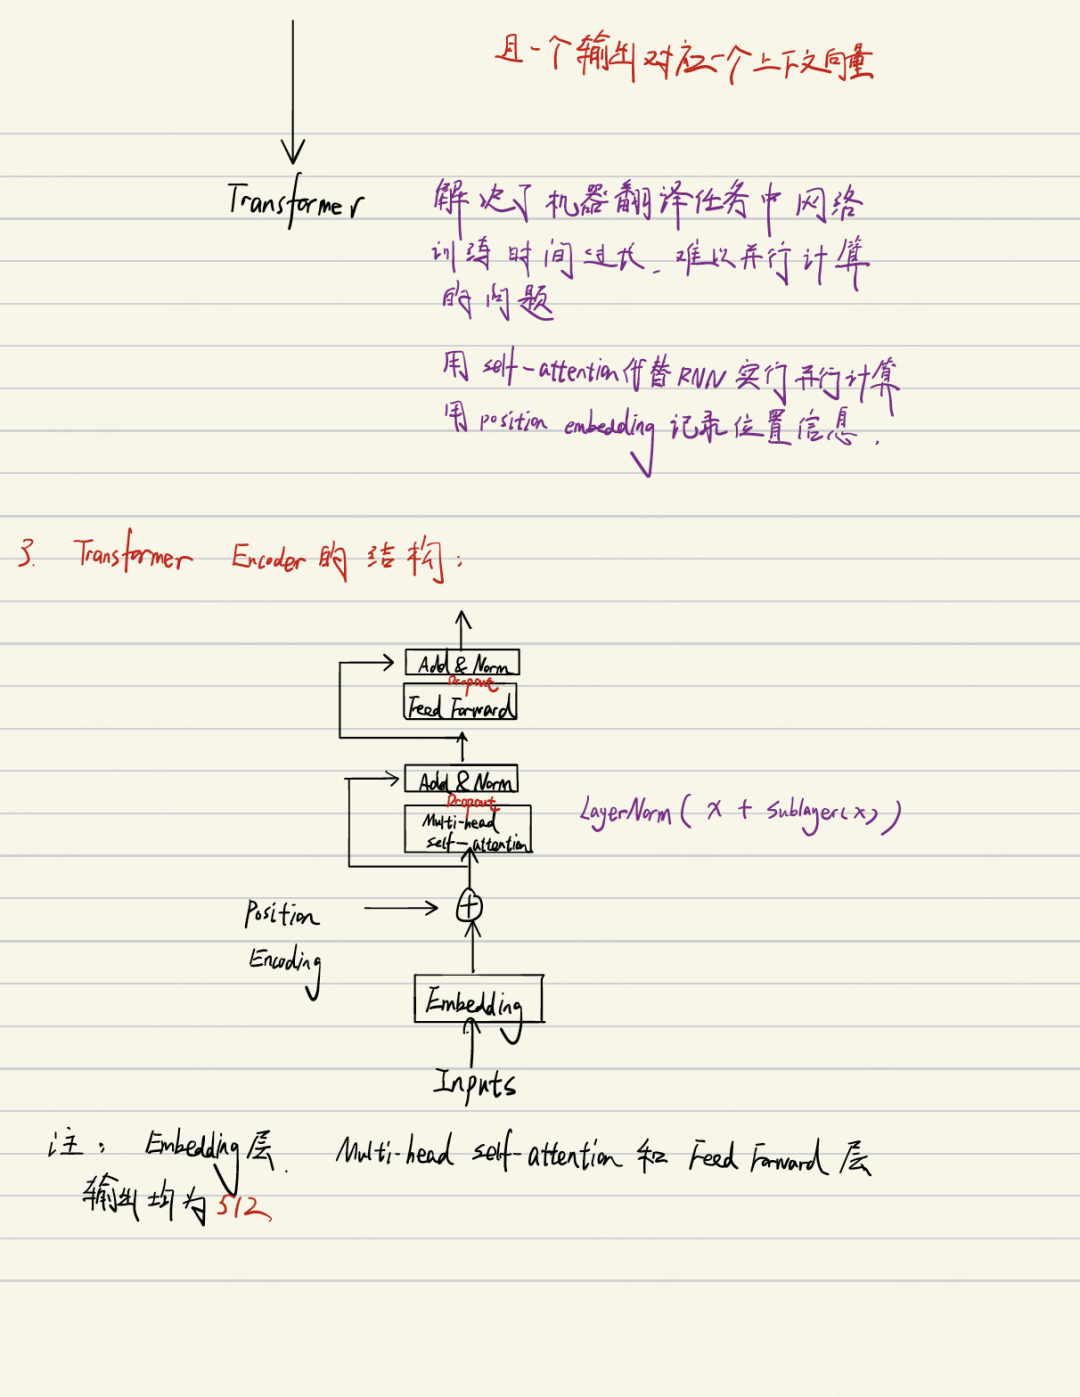 且一个输出对应一个上下文向量
Transformer
解决了机器翻译任务中网络
训练时间过长、难以并行计算
的问题
用 self-attention代替RNN 实行并行计算
用 position embedding 记录位置信息.
3. Transformer Encoder 的结构:
Add & Norm
Dropout
Feed Forward
Add & Norm
Dropout
Multi-head
self-attention
LayerNorm ( x + sublayer(x) )
+
Position
Encoding
Embedding
Inputs
注: Embedding层、 Multi-head self-attention 和 Feed Forward 层
输出均为512